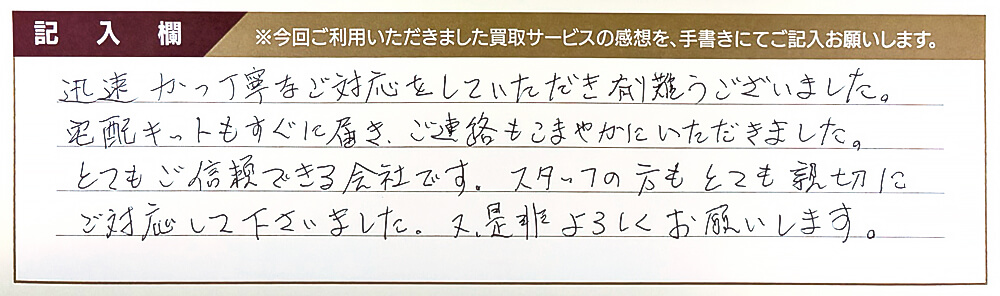 記入欄
※今回ご利用いただきました買取サービスの感想を、手書きにてご記入お願いします。
迅速かつ丁寧なご対応をしていただき有難うございました。
宅配キットもすぐに届き、ご連絡もこまやかにいただきました。
とてもご信頼できる会社です。スタッフの方もとても親切に
ご対応して下さいました。又、是非よろしくお願いします。